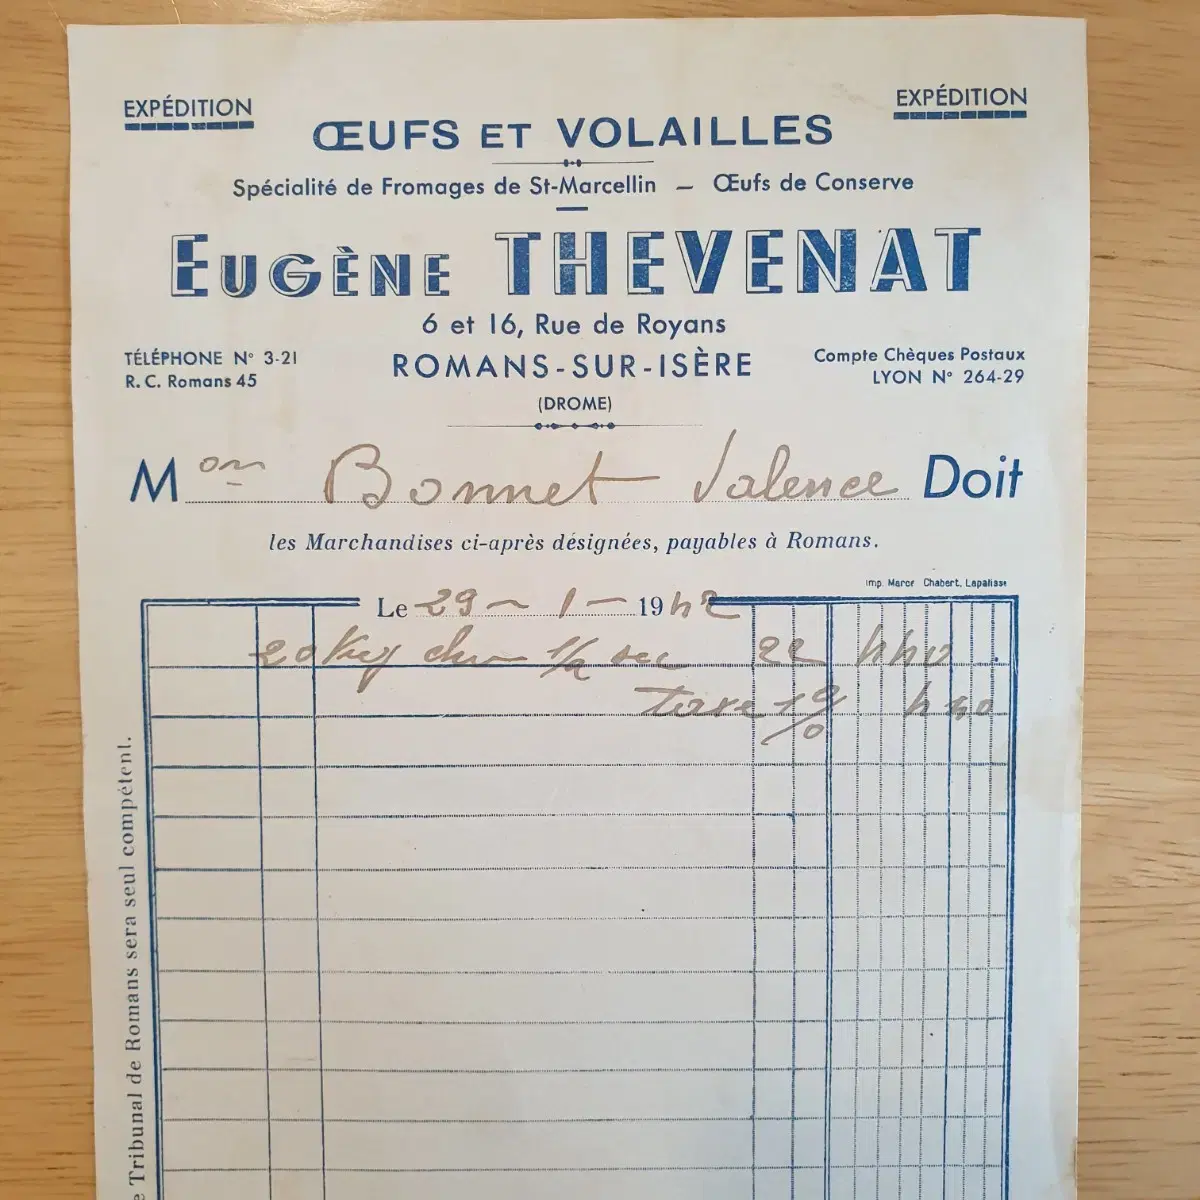 EXPÉDITION
EXPÉDITION
ŒUFS ET VOLAILLES
Spécialité de Fromages de St-Marcellin — Œufs de Conserve
EUGÈNE THEVENAT
6 et 16, Rue de Royans
TÉLÉPHONE N° 3-21
R. C. Romans 45
ROMANS-SUR-ISÈRE
(DROME)
Compte Chèques Postaux
LYON N° 264-29
Mon Bonnet Valence Doit
les Marchandises ci-après désignées, payables à Romans.
Imp. Marcel Chabert, Lapalisse
Le 29-1-1942
20 Kg chev 1/2 sec 22 440
taxe 1% 4 40
Tribunal de Romans sera seul compétent.